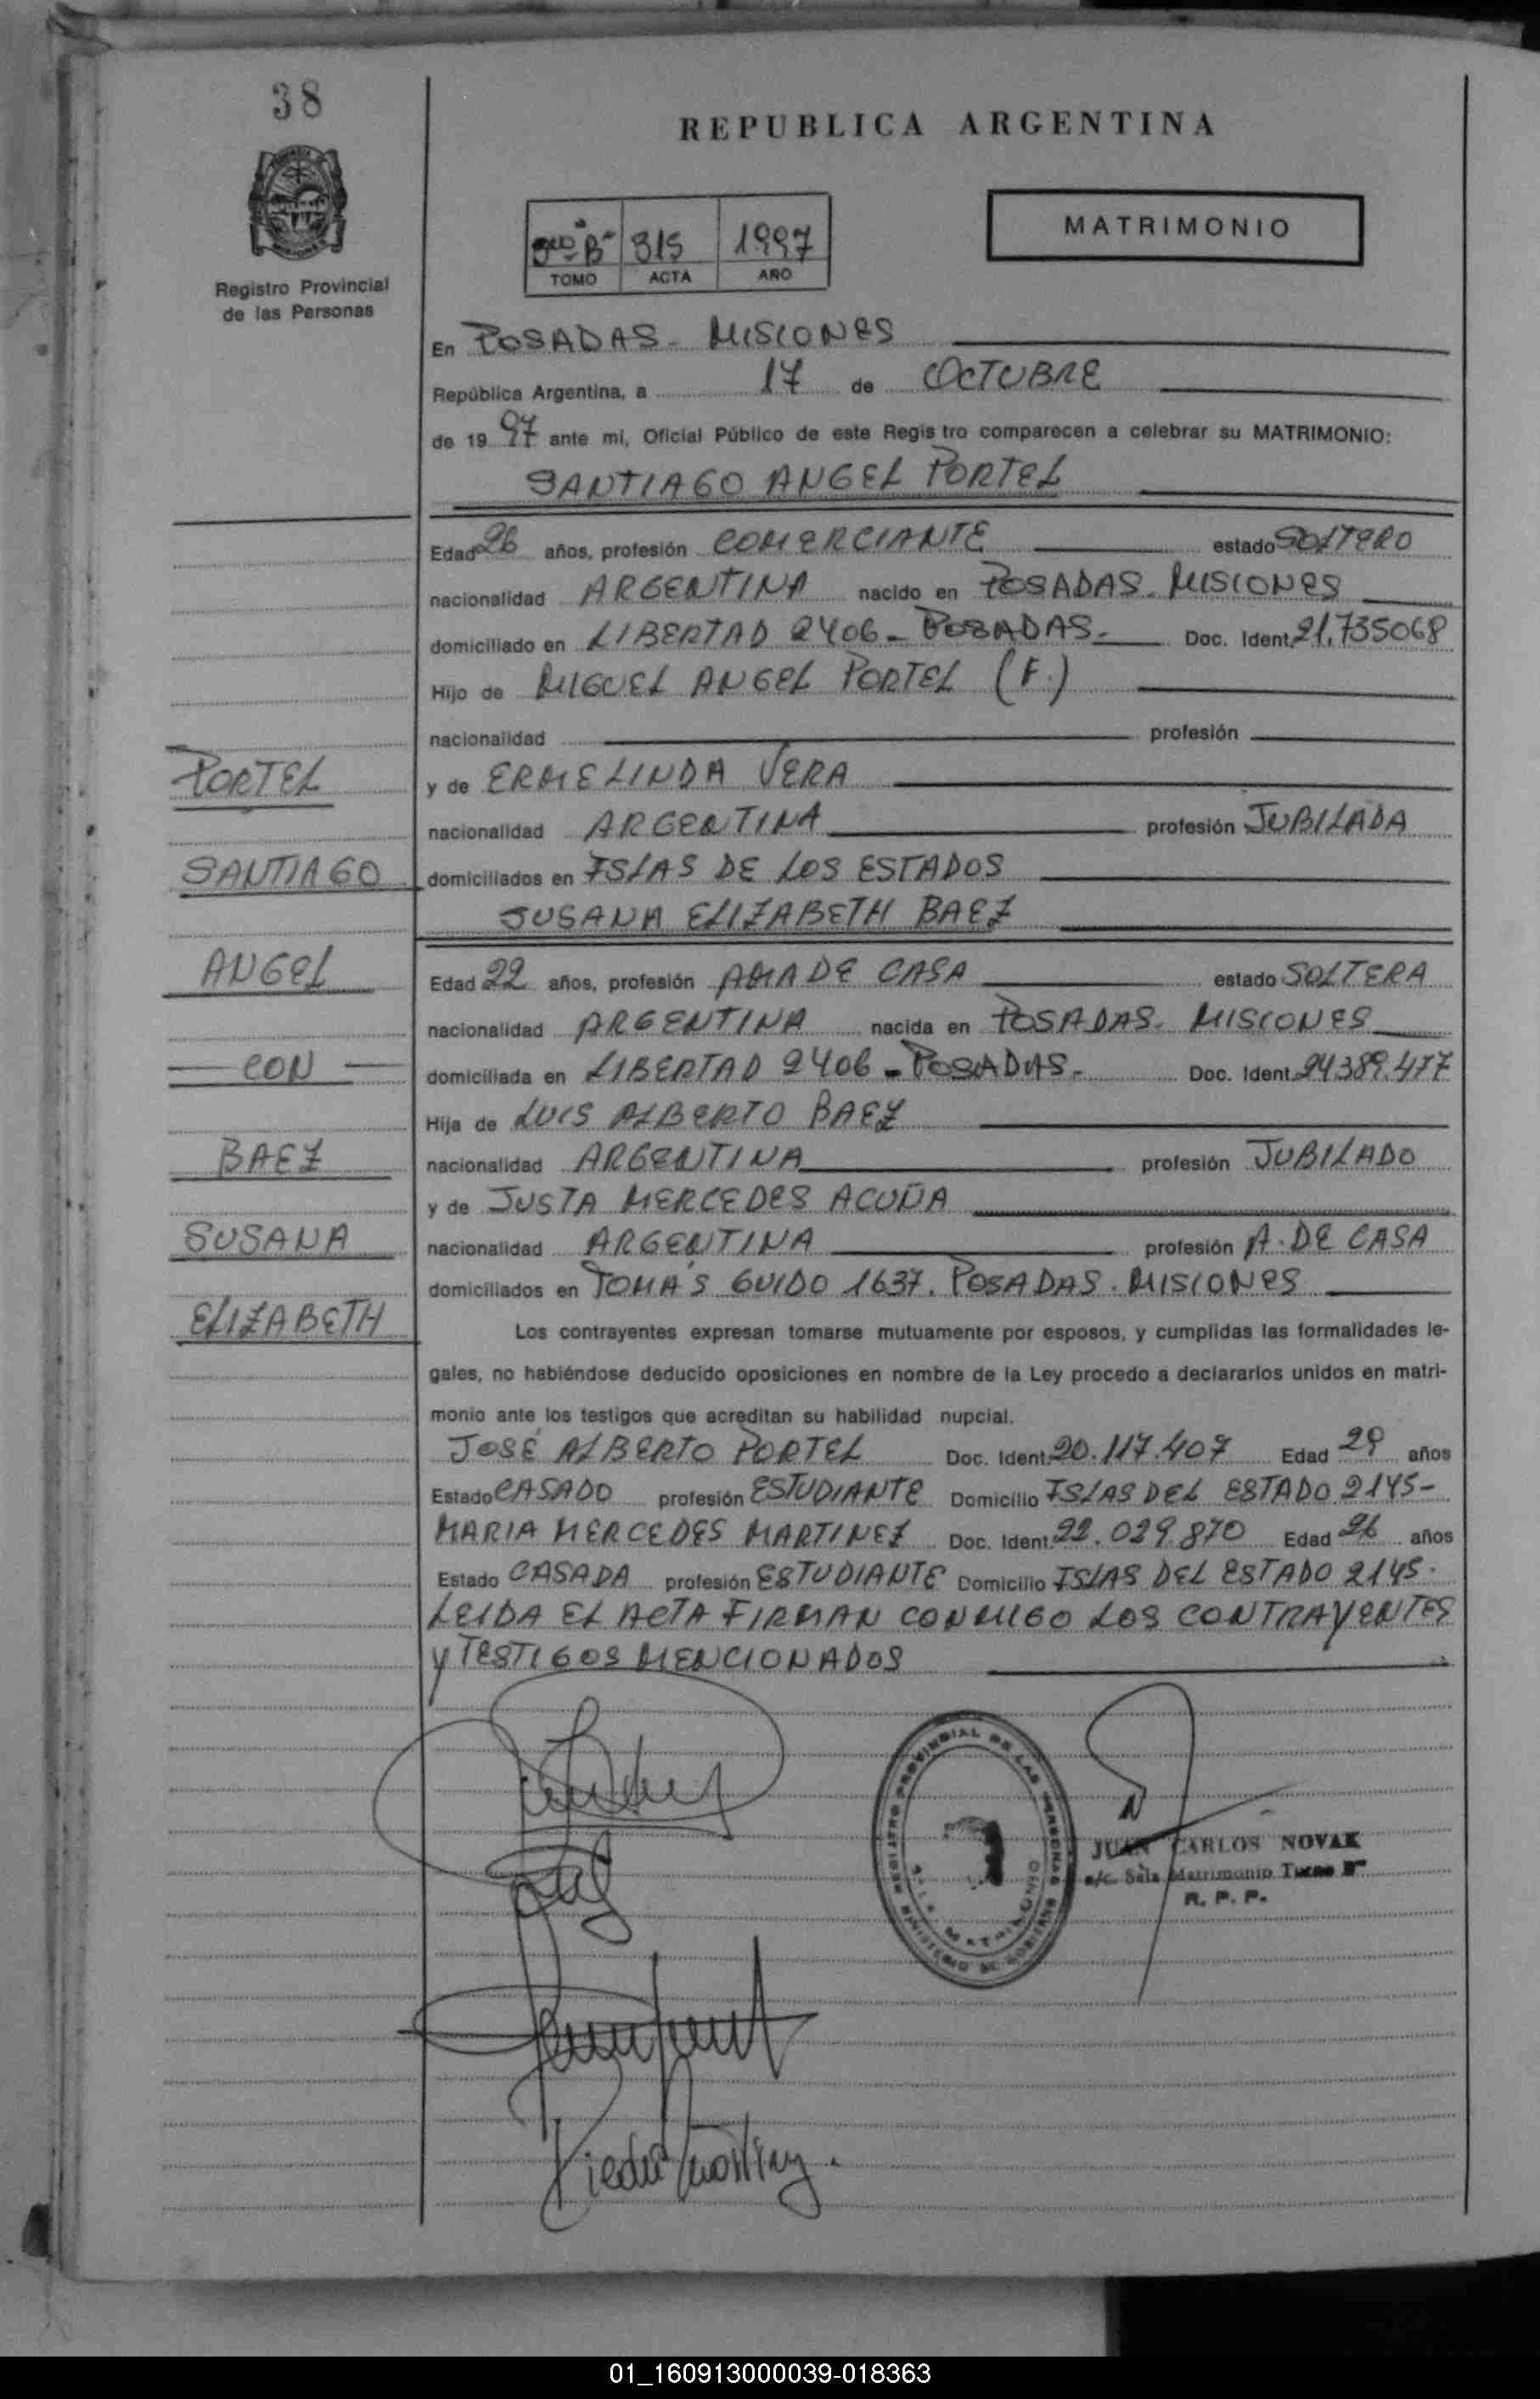 38
REPUBLICA ARGENTINA
MATRIMONIO
315 1997
TOMO ACTA AÑO
Registro Provincial
de las Personas
En POSADAS - MISIONES
República Argentina, a 17 de OCTUBRE
de 19 97 ante mi, Oficial Público de este Regis tro comparecen a celebrar su MATRIMONIO:
SANTIAGO ANGEL PORTEL
Edad 26 años, profesión COMERCIANTE estado SOLTERO
nacionalidad ARGENTINA nacido en POSADAS - MISIONES
domiciliado en LIBERTAD 2406 - POSADAS - Doc. Ident. 21.735068
Hijo de MIGUEL ANGEL PORTEL (F.)
nacionalidad profesión
PORTEL
y de ERMELINDA VERA
nacionalidad ARGENTINA profesión JUBILADA
SANTIAGO
domiciliados en ISLAS DE LOS ESTADOS
SUSANA ELIZABETH BAEZ
ANGEL
Edad 22 años, profesión AMA DE CASA estado SOLTERA
nacionalidad ARGENTINA nacida en POSADAS - MISIONES
CON
domiciliada en LIBERTAD 2406 - POSADAS - Doc. Ident. 24.389.477
Hija de LUIS ALBERTO BAEZ
BAEZ
nacionalidad ARGENTINA profesión JUBILADO
y de JUSTA MERCEDES ACUÑA
SUSANA
nacionalidad ARGENTINA profesión A. DE CASA
domiciliados en TOMÁS GUIDO 1637. POSADAS. MISIONES
ELIZABETH
Los contrayentes expresan tomarse mutuamente por esposos, y cumplidas las formalidades le-
gales, no habiéndose deducido oposiciones en nombre de la Ley procedo a declararlos unidos en matri-
monio ante los testigos que acreditan su habilidad nupcial.
JOSÉ ALBERTO PORTEL Doc. Ident. 20.117.407 Edad 29 años
Estado CASADO profesión ESTUDIANTE Domicilio ISLAS DEL ESTADO 2145 -
MARIA MERCEDES MARTINEZ Doc. Ident. 22.029.870 Edad 26 años
Estado CASADA profesión ESTUDIANTE Domicilio ISLAS DEL ESTADO 2145.
LEIDA EL ACTA FIRMAN CONMIGO LOS CONTRAYENTES
Y TESTIGOS MENCIONADOS
REGISTRO PROVINCIAL DE LAS PERSONAS
SALA MATRIMONIO
MINISTERIO DE GOBIERNO
JUAN CARLOS NOVAK
a/c. Sala Matrimonio Turno
R. P. P.
01_160913000039-018363